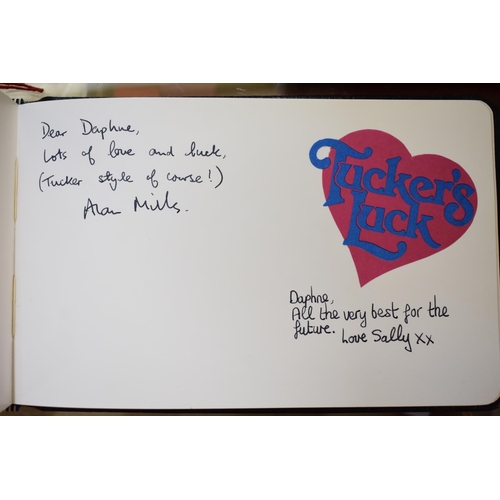 Dear Daphne,
Lots of love and luck,
(Tucker style of course!)
Alan Mills.
Tucker's
Luck
Daphne,
All the very best for the
future.
Love Sally xx